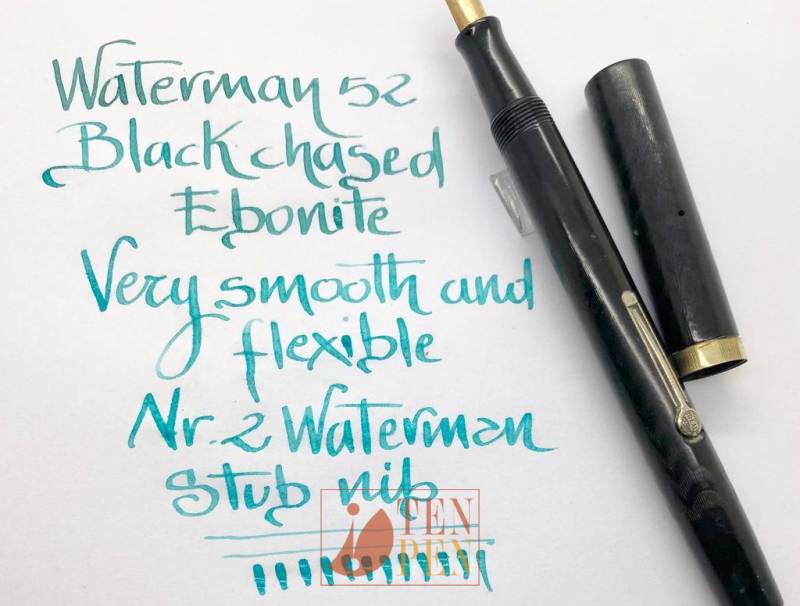 Waterman 52
Black chased
Ebonite
Very smooth and
flexible
Nr. 2 Waterman
Stub nib
TEN
PEN